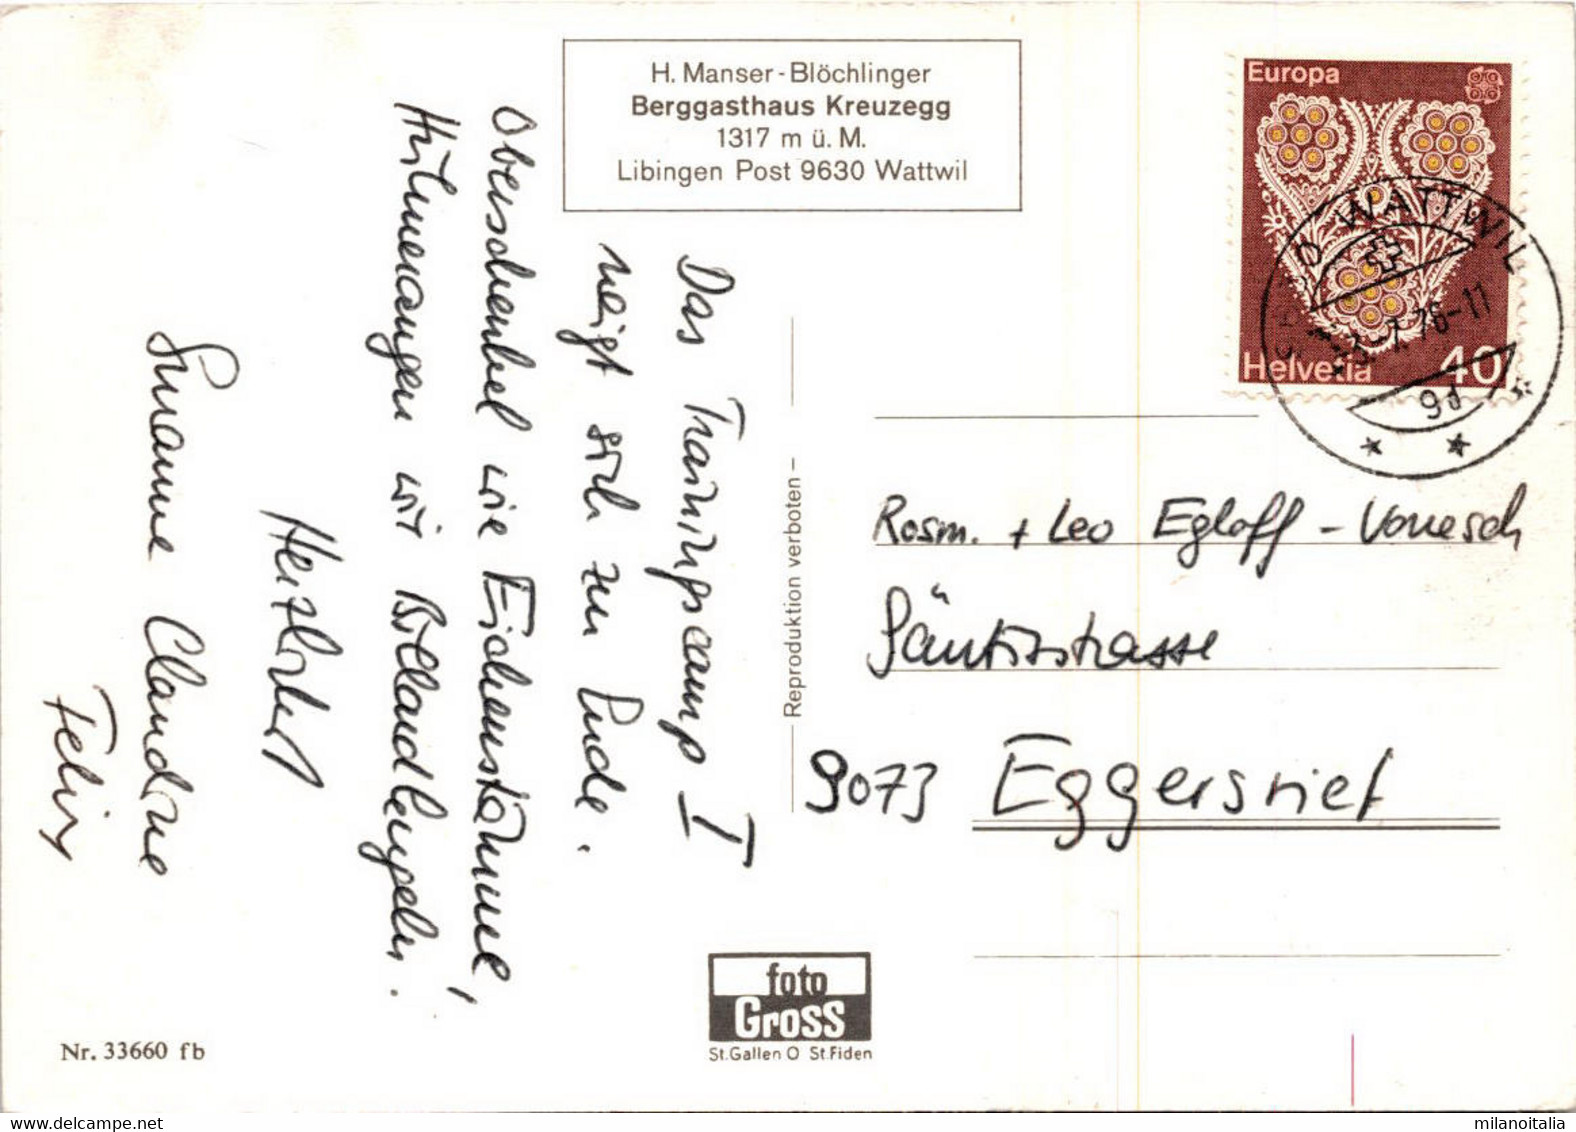 H. Manser-Blöchlinger
Berggasthaus Kreuzegg
1317 m ü. M.
Libingen Post 9630 Wattwil
Das Trainingscamp I
neigt sich zum Ende.
Oberschenkel wie Eichenstämme,
Hühneraugen wie Billardkugeln.
Herzlichst
Susanne Claudine
Felix
Reproduktion verboten
Europa
Helvetia 40
WATTWIL
3.-7.76-11
9d
Rosm. + Leo Egloff - Vonesch
Säntisstrasse
9073 Eggersriet
foto
Gross
St.Gallen O St.Fiden
Nr. 33660 fb
milanoitalia